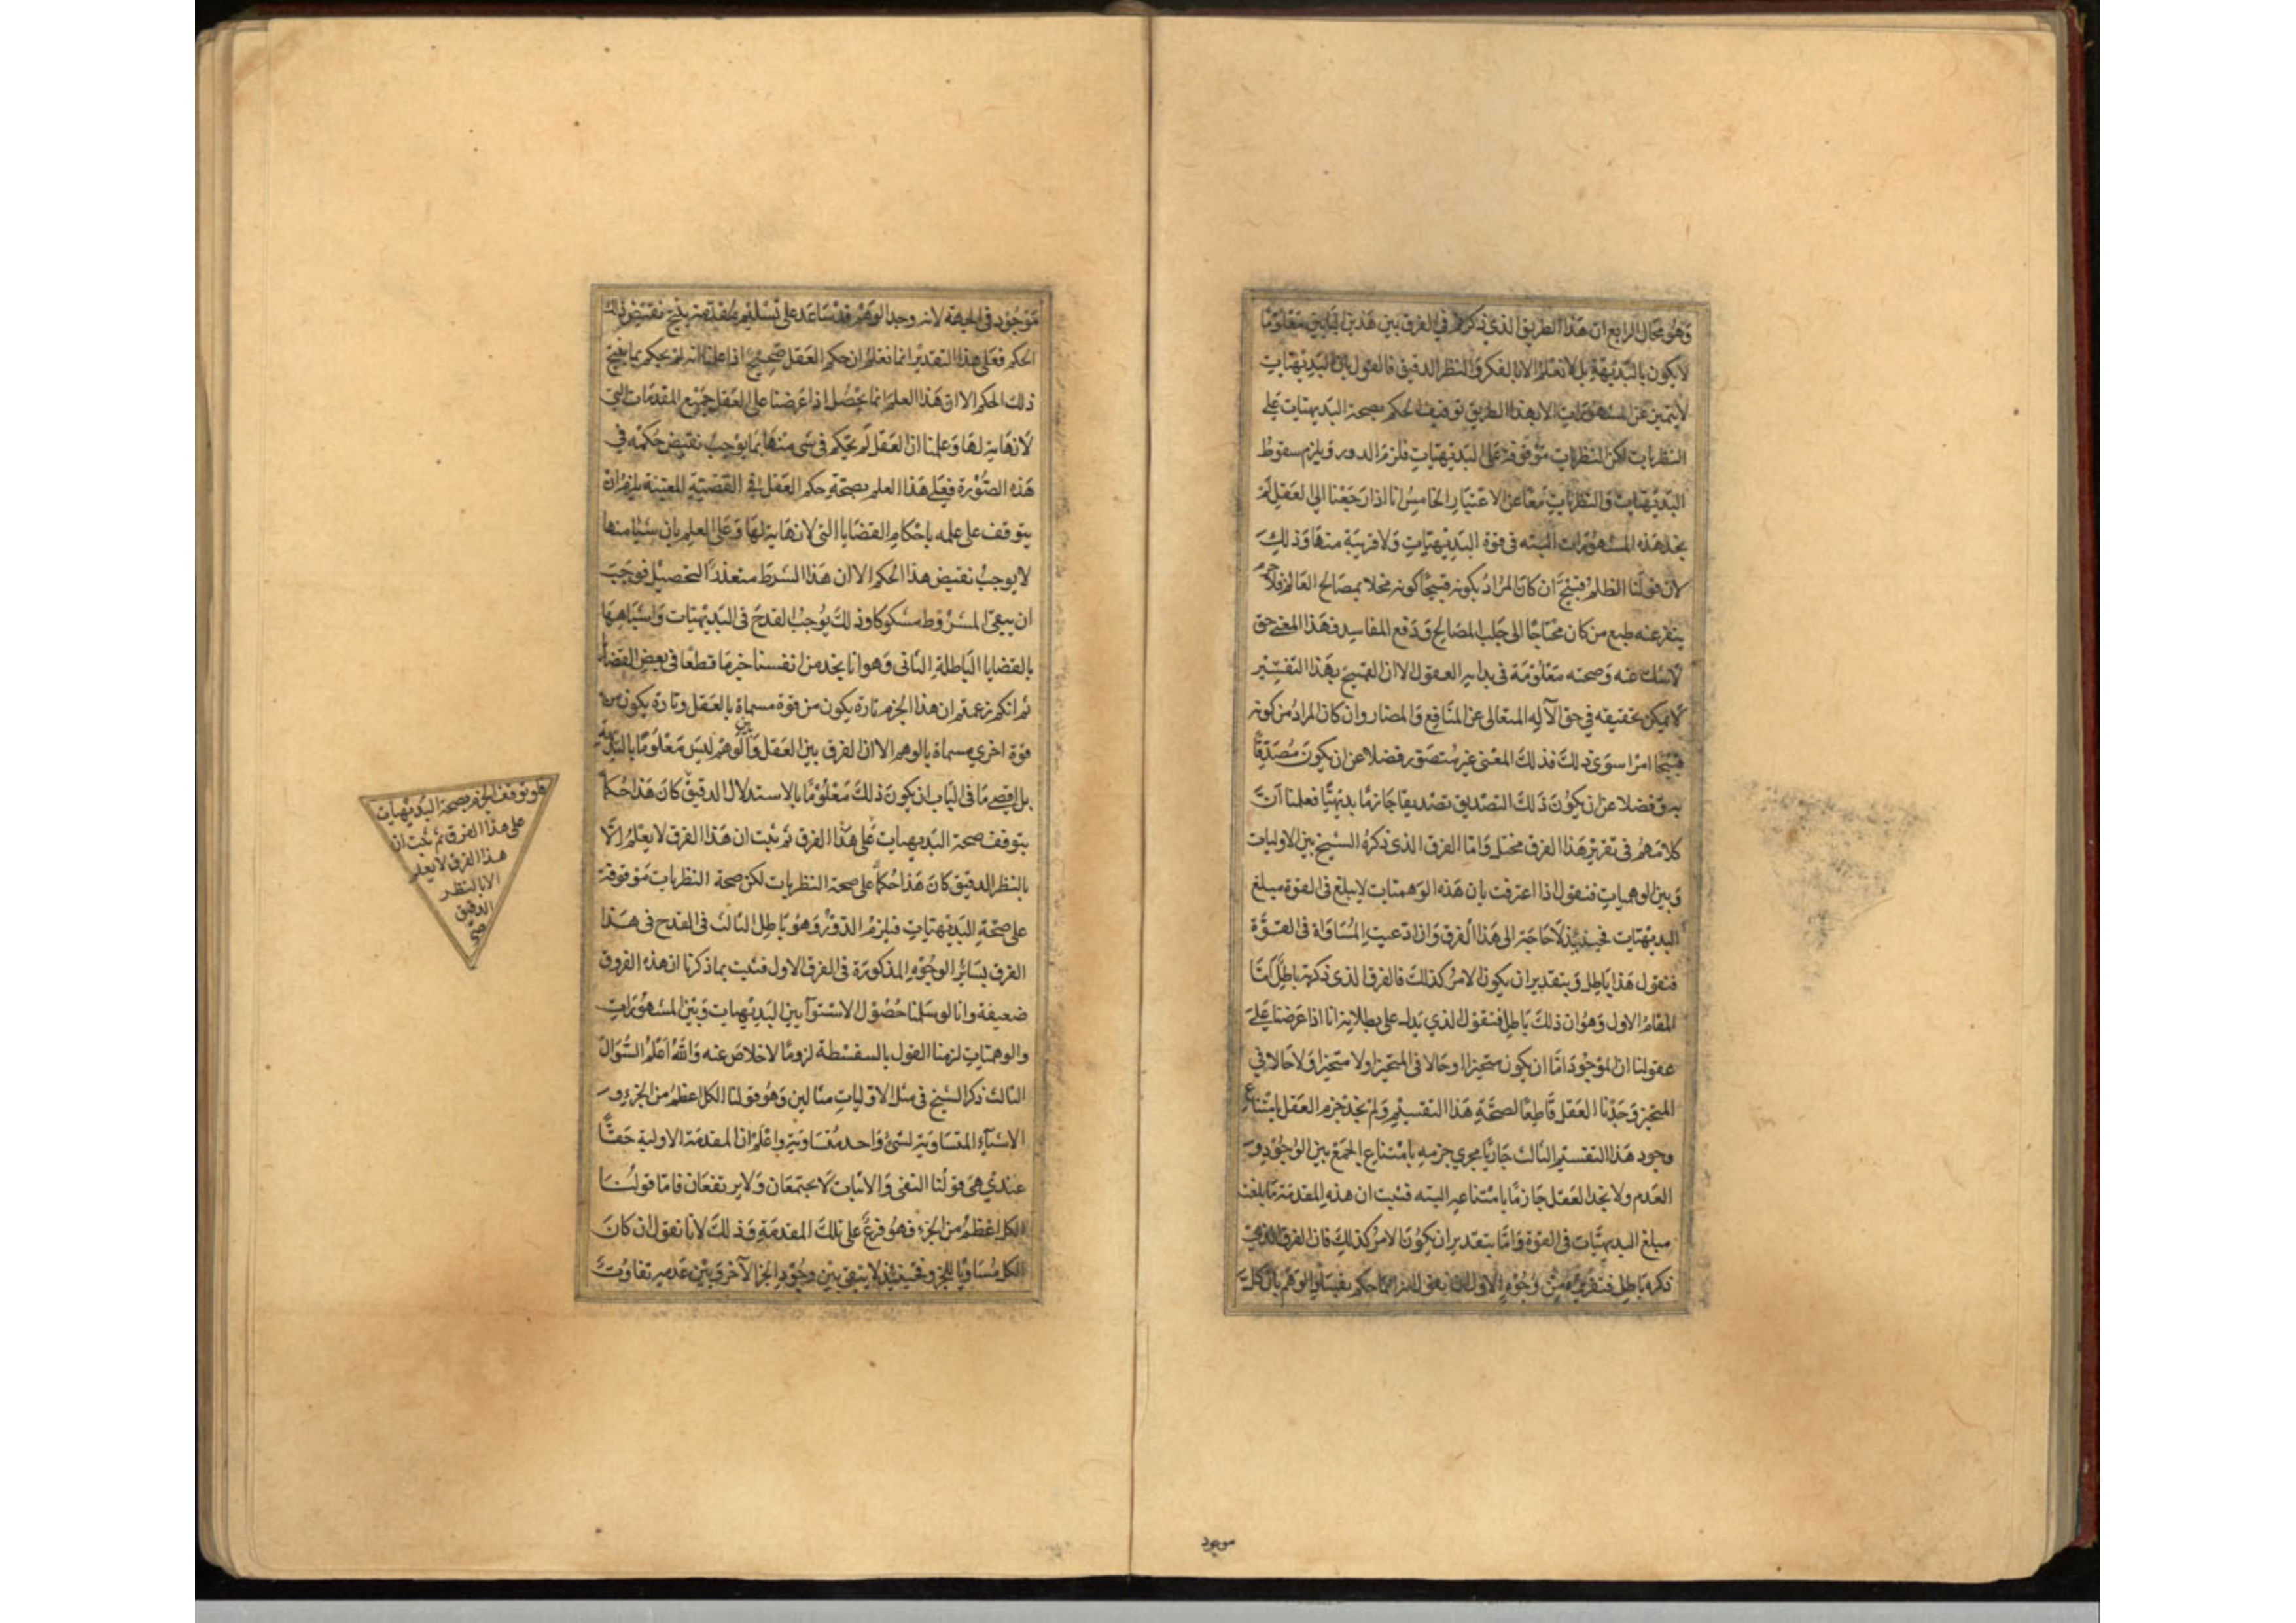 وهو محال الرابع ان هذا الطريق الذي ذكرتم في الفرق بين هذين البابين معلوما
لا يكون بالبديهة بل لا نعلم الا بالفكر والنظر الدقيق فالقول بان البديهيات
لا يتميز عن المشهورات الا بهذا الطريق توقيف الحكم بصحة البديهيات على
النظريات لكن النظريات موقوفة على البديهيات فلزم الدور ويلزم سقوط
البديهيات والنظريات معا عن الاعتبار الخامس انا اذا رجعنا الى العقل لم
يجد هذه المشهورات البته في قوة البديهيات ولا قريبة منها وذلك
لان قولنا الظلم قبيح ان كان المراد بكونه قبيحا كونه مخلا بمصالح العالم فلا جرم
ينفر عنه طبع من كان محتاجا الى جلب المصالح ودفع المفاسد فهذا المعنى حق
لا شك عنه وصحته معلومة في بدايه العقول الا ان القبيح بهذا التفسير
لا يمكن تحقيقه في حق الآله المتعالى عن المنافع والمضار وان كان المراد من كونه
قبيحا امرا سوى ذلك فذلك المعنى غير متصور فضلا عن ان يكون مصدقا
به وفضلا عن ان يكون ذلك التصديق تصديقا جازما بديهيا فعلمنا ان
كلامهم في تقرير هذا الفرق مختل واما الفرق الذى ذكره الشيخ بين الاوليات
وبين الوهميات فنقول اذا اعترفت بان هذه الوهميات لا يبلغ في القوة مبلغ
البديهيات فحينئذ لا حاجة الى هذا الفرق وان ادعيت المساواة في القوة
فنقول هذا باطل وبتقدير ان يكون الامر كذلك فالفرق الذى ذكرته باطل اما
المقام الاول وهو ان ذلك باطل فنقول الذي يدل على بطلانه انا اذا عرضنا على
عقولنا ان الموجود اما ان يكون متحيزا او حالا في المتحيز او لا متحيزا ولا حالا في
المتحيز وجدنا العقل قاطعا لصحة هذا التقسيم ولم نجد جزم العقل بامتناع
وجود هذا التقسيم الثالث جاريا مجرى جزمه بامتناع الجمع بين الوجود و
العدم ولا نجد العقل جازما بامتناعه البته فثبت ان هذه المقدمة ما بلغت
مبلغ البديهيات في القوة واما بتقدير ان يكون الامر كذلك فان الفرق الذي
ذكره باطل فتقريره من وجوه الاول ان نقول حكم الوهم بان كل
موجود
موجود في الجهة لانه وجد الوهم قد ساعد على تسليم مقدمة ينتج نقيض ذلك
الحكم فعلى هذا التقدير انما نعلم ان حكم العقل صحيح اذا علمنا انه لم يحكم بما ينتج
ذلك الحكم الا ان هذا العلم انما يحصل اذا عرضنا على العقل جميع المقدمات التي
لا نهاية لها وعلمنا ان العقل لم يحكم في شى منها بما يوجب نقيض حكمه في
هذه الصورة فعلى هذا العلم بصحة حكم العقل في القضية المعينة يلزم ان
يتوقف على علمه باحكام القضايا التى لا نهاية لها وعلى العلم بان شيئا منها
لا يوجب نقيض هذا الحكم الا ان هذا الشرط متعذر التحصيل فوجب
ان يبقى المشروط مشكوكا وذلك يوجب القدح في البديهيات واشباهها
بالقضايا الباطلة الثانى وهو انا نجد من انفسنا جزما قطعا فى بعض القضايا
ثم انكم زعمتم ان هذا الجزم تارة يكون من قوة مسماة بالعقل وتارة يكون من
قوة اخري مسماة بالوهم الا ان الفرق بين العقل وبين الوهم ليس معلوما بالبديهة
بل اقصى ما في الباب ان يكون ذلك معلوما بالاستدلال الدقيق كان هذا حكما
بتوقف صحة البديهيات على هذا الفرق ثم ثبت ان هذا الفرق لا يعلم الا
بالنظر الدقيق كان هذا حكما على صحة النظريات لكن صحة النظريات موقوفة
على صحة البديهيات فيلزم الدور وهو باطل الثالث في القدح في هذا
الفرق بسائر الوجوه المذكورة في الفرق الاول فثبت بما ذكرنا ان هذه الفروق
ضعيفة وانا لو سلمنا حصول الاستوآ بين البديهيات وبين المشهورات
والوهميات لزمنا القول بالسفسطة لزوما لا خلاص عنه والله اعلم السؤال
الثالث ذكر الشيخ في مثل الاوليات مثالين وهو قولنا الكل اعظم من الجزء و
الاشيآء المتساوية لشئ واحد متساوية واعلم ان المقدمة الاولية حقا
عندي هى قولنا النفى والاثبات لا يجتمعان ولا يرتفعان فاما قولنا
الكل اعظم من الجزء فهو فرع على تلك المقدمة وذلك لانا نقول ان كان
الكل مساويا للجزء فحينئذ لا يبقى بين وجود الجزء الآخر وبين عدمه تفاوت
فلو توقف الجزم بصحة البديهيات
على هذا الفرق ثم ثبت ان
هذا الفرق لا يعلم
الا بالنظر
الدقيق
صح